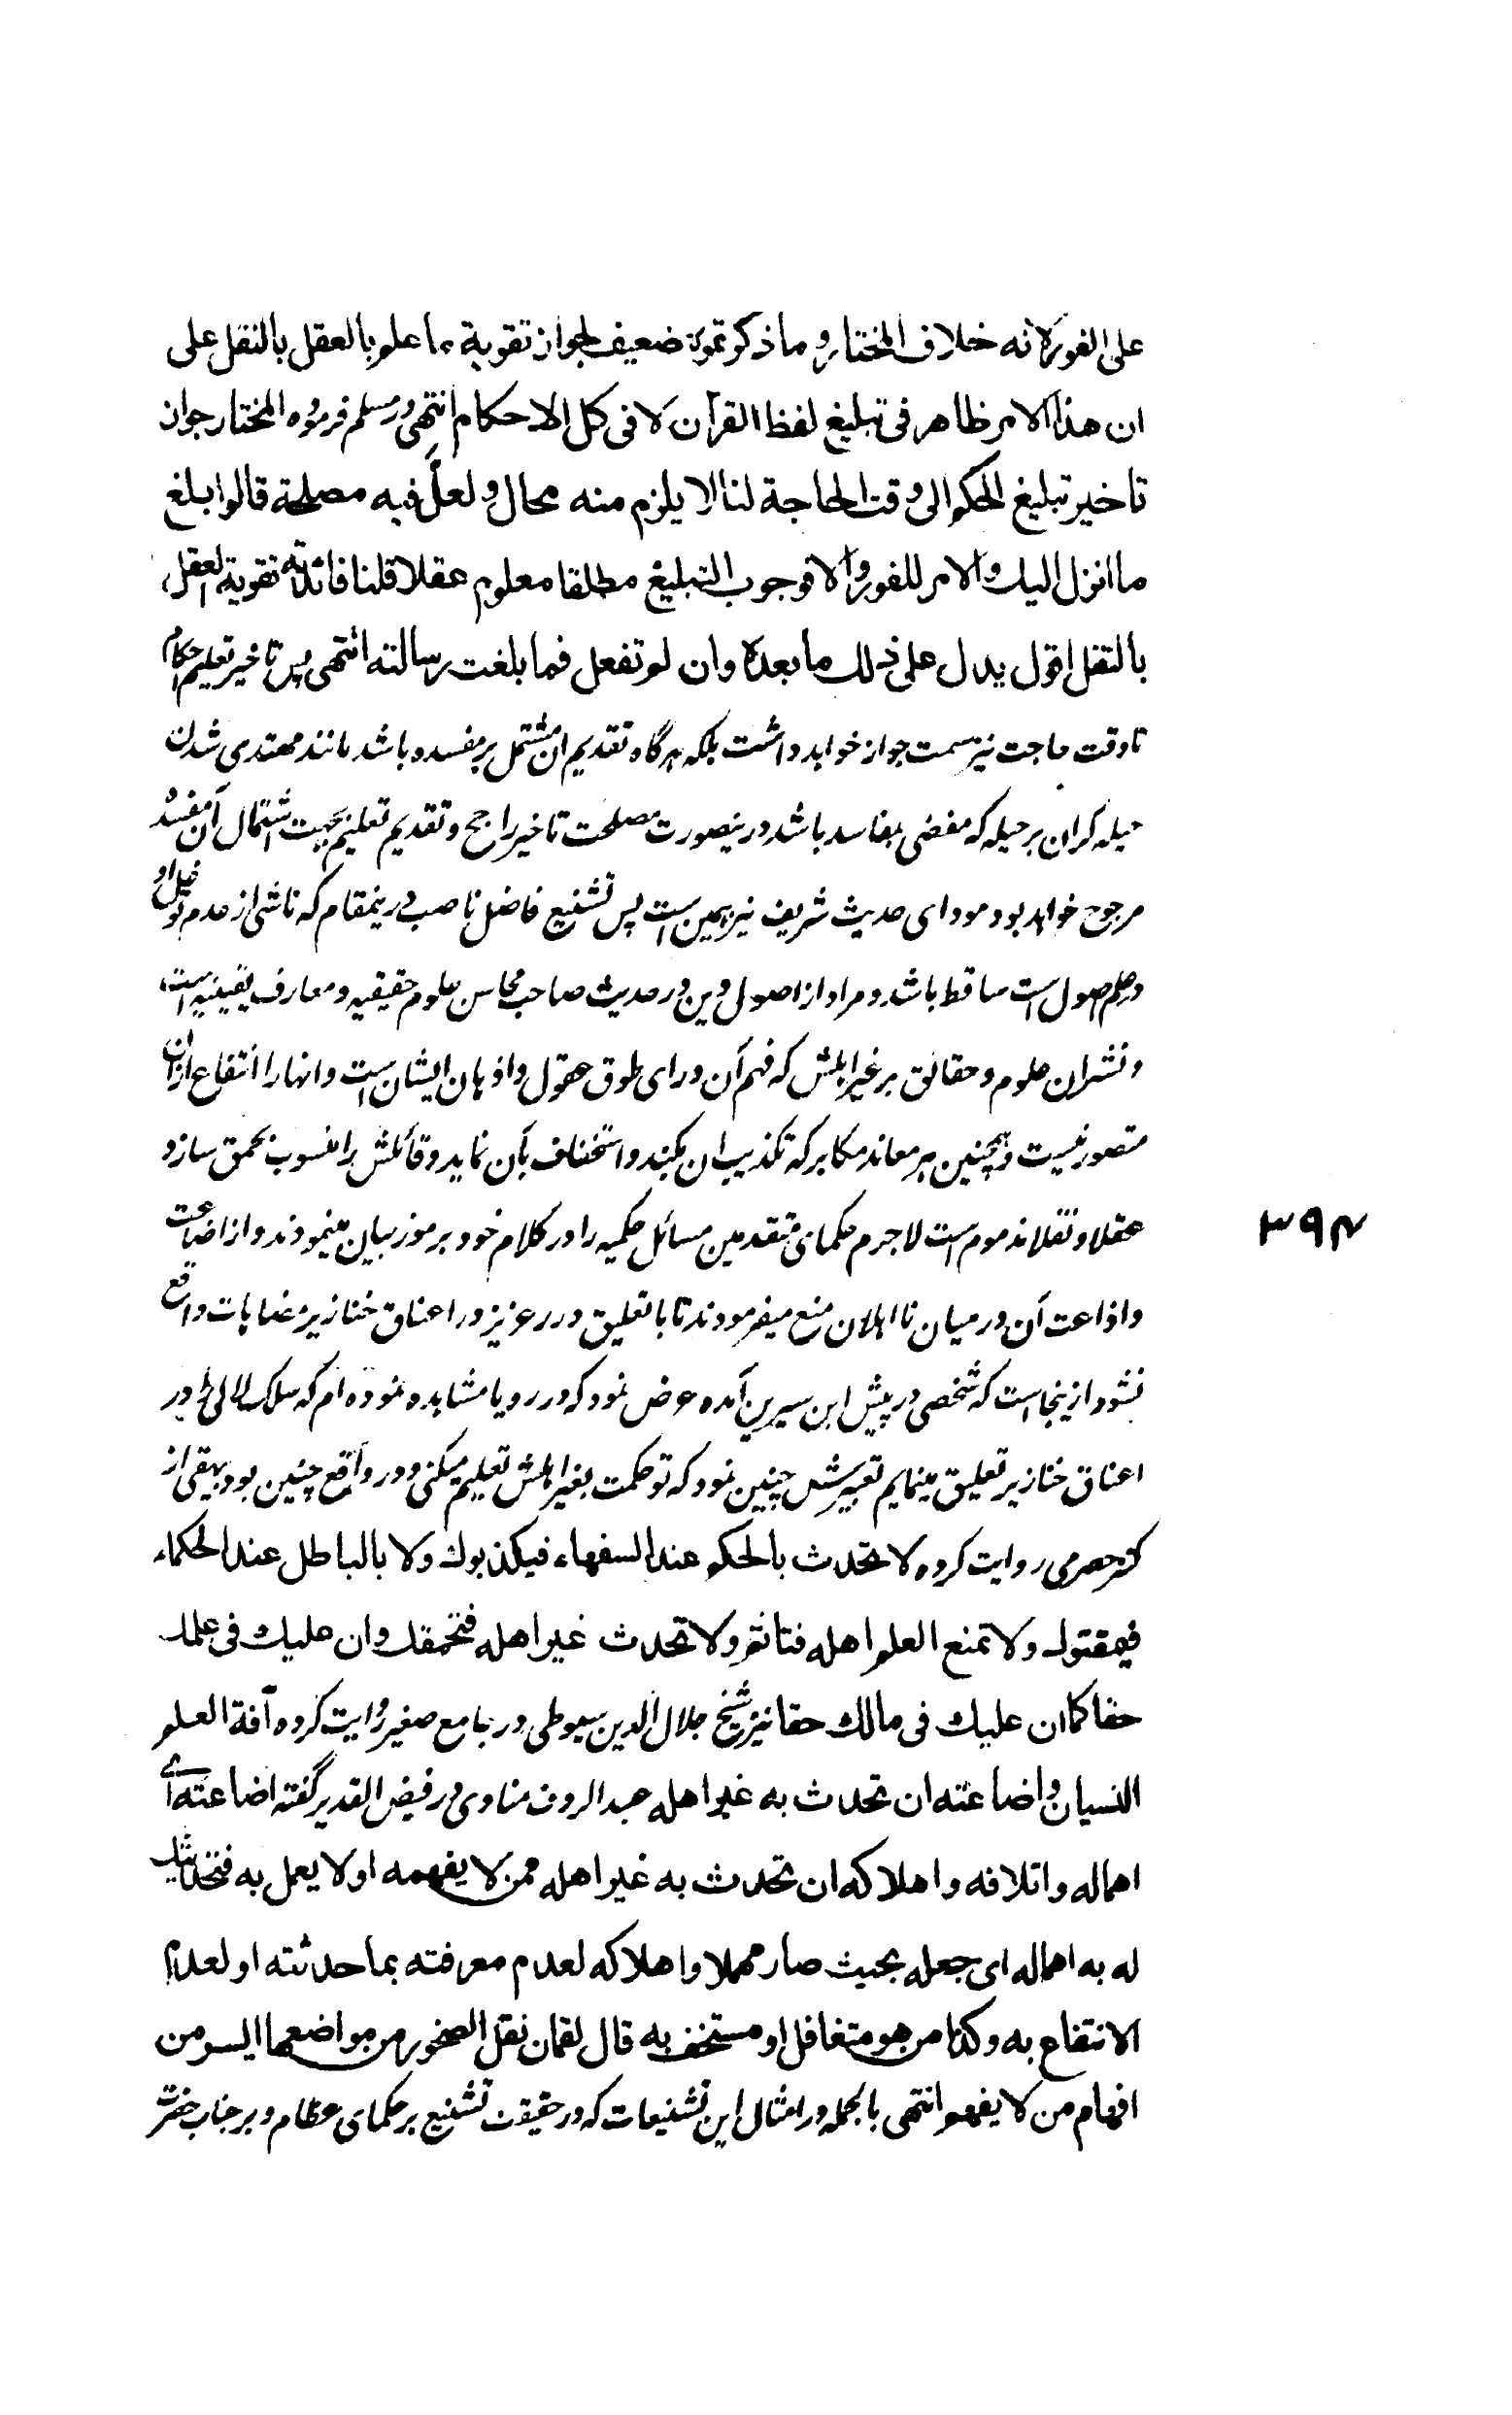 على الفور لانه خلاف المختار و ما ذكرتموه ضعيف لجواز تقوية ما علم بالعقل بالنقل على
ان هذا الامر ظاهر فى تبليغ لفظ القرآن لا فى كل الاحكام انتهى و در مسلم فرموده المختار جواز
تاخير تبليغ الحكم الى وقت الحاجة لنا لا يلزم منه محال و لعلّ فيه مصلحة قالوا بلغ
ما انزل اليك و الامر للفور و الا فوجوب التبليغ مطلقا معلوم عقلا قلنا فائدته تقوية العقل
بالنقل اقول يدل على ذلك ما بعده وان لم تفعل فما بلغت رسالته انتهى پس تاخير تعليم احكام
تا وقت حاجت نيز سمت جواز خواهد داشت بلكه هرگاه تقديم ان مشتمل بر مفسده باشد مانند مهتدى شدن
حيله گران بر حيله كه مفضى بمفاسد باشد درينصورت مصلحت تاخير راجح و تقديم تعليم بجهت اشتمال آن مفسده
مرجوح خواهد بود موداى حديث شريف نيز همين است پس تشنيع فاضل ناصب درينمقام كه ناشى از عدم توغل او
در علم اصول است ساقط باشد و مراد از اصول دين در حديث صاحب محاسن علوم حقيقيه و معارف يقينيه است
و نشر ان علوم و حقائق بر غير اهلش كه فهم آن وراى طوق عقول و اذهان ايشان است و انها را انتفاع ازان
متصور نيست و همچنين بر معاند مكابر كه تكذيب ان بكند و استخفاف بآن نمايد و قائلش را منسوب بحمق سازد
عقلا و نقلا مذموم است لاجرم حكماى متقدمين مسائل حكميه را در كلام خود برموز بيان مينمودند و از اضاعت
۳۹۴
و اذاعت آن در ميان نااهلان منع ميفرمودند تا باتعليق درر عزيز در اعناق خنازير غضابات واقع
نشود ازينجا است كه شخصى در پيش ابن سيرين آمده عرض نمود كه در رويا مشاهده نموده ام كه سلك لالى را در
اعناق خنازير تعليق مينمايم تعبيرش چنين نمود كه تو حكمت بغير اهلش تعليم ميكنى و در واقع چنين بود بيهقى از
كثر حضرمى روايت كرده لا تحدث بالحكم عند السفهاء فيكذبوك ولا بالباطل عند الحكماء
فيمقتوك ولا تمنع العلم اهله فتاثم ولا تحدث غير اهله فتحمقك وان عليك فى علمك
حقا كما ان عليك فى مالك حقا نيز شيخ جلال الدين سيوطى در جامع صغير روايت كرده آفة العلم
النسيان و اضاعته ان تحدث به غير اهله عبد الروف مناوى در فيض القدير گفته اضاعته اى
اهماله واتلافه و اهلاكه ان تحدث به غير اهله ممن لا يفهمه او لا يعمل به فتحديثك
له به اهماله اى جعله بحيث صار مهملا و اهلاكه لعدم معرفته بما حدثته او لعدم
الانتفاع به وكذا من هو متغافل او مستخف به قال لقمان نقل الصخور من مواضعها ايسر من
افهام من لا يفهم انتهى بالجمله در امثال اين تشنيعات كه در حقيقت تشنيع بر حكماى عظام و بر جناب حضرت